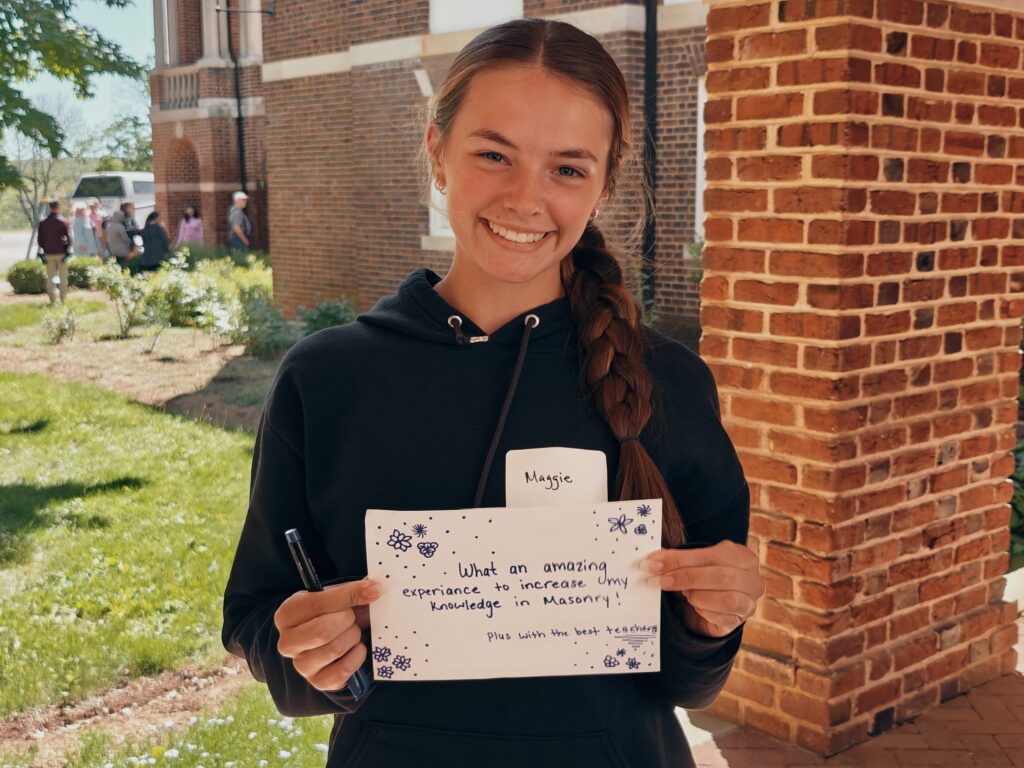 Maggie
What an amazing
experiance to increase my
Knowledge in Masonry!
Plus with the best teachers